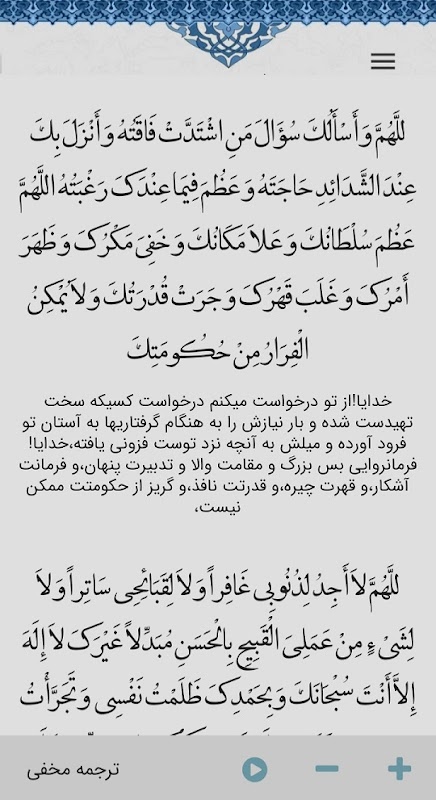 للَّهُمَّ وَ أَسْأَلُكَ سُؤَالَ مَنِ اشْتَدَّتْ فَاقَتُهُ وَ أَنْزَلَ بِكَ
عِنْدَ الشَّدَائِدِ حَاجَتَهُ وَ عَظُمَ فِيمَا عِنْدَكَ رَغْبَتُهُ اللَّهُمَّ
عَظُمَ سُلْطَانُكَ وَ عَلاَ مَكَانُكَ وَ خَفِيَ مَكْرُكَ وَ ظَهَرَ
أَمْرُكَ وَ غَلَبَ قَهْرُكَ وَ جَرَتْ قُدْرَتُكَ وَ لاَ يُمْكِنُ
الْفِرَارُ مِنْ حُكُومَتِكَ
خدایا!از تو درخواست میکنم درخواست کسیکه سخت
تهیدست شده و بار نیازش را به هنگام گرفتاریها به آستان تو
فرود آورده و میلش به آنچه نزد توست فزونی یافته،خدایا!
فرمانروایی بس بزرگ و مقامت والا و تدبیرت پنهان،و فرمانت
آشکار،و قهرت چیره،و قدرتت نافذ،و گریز از حکومتت ممکن
نیست،
للَّهُمَّ لاَ أَجِدُ لِذُنُوبِي غَافِراً وَ لاَ لِقَبَائِحِي سَاتِراً وَ لاَ
لِشَيْءٍ مِنْ عَمَلِيَ الْقَبِيحِ بِالْحَسَنِ مُبَدِّلاً غَيْرَكَ لاَ إِلَهَ
إِلاَّ أَنْتَ سُبْحَانَكَ وَ بِحَمْدِكَ ظَلَمْتُ نَفْسِي وَ تَجَرَّأْتُ
ترجمه مخفی